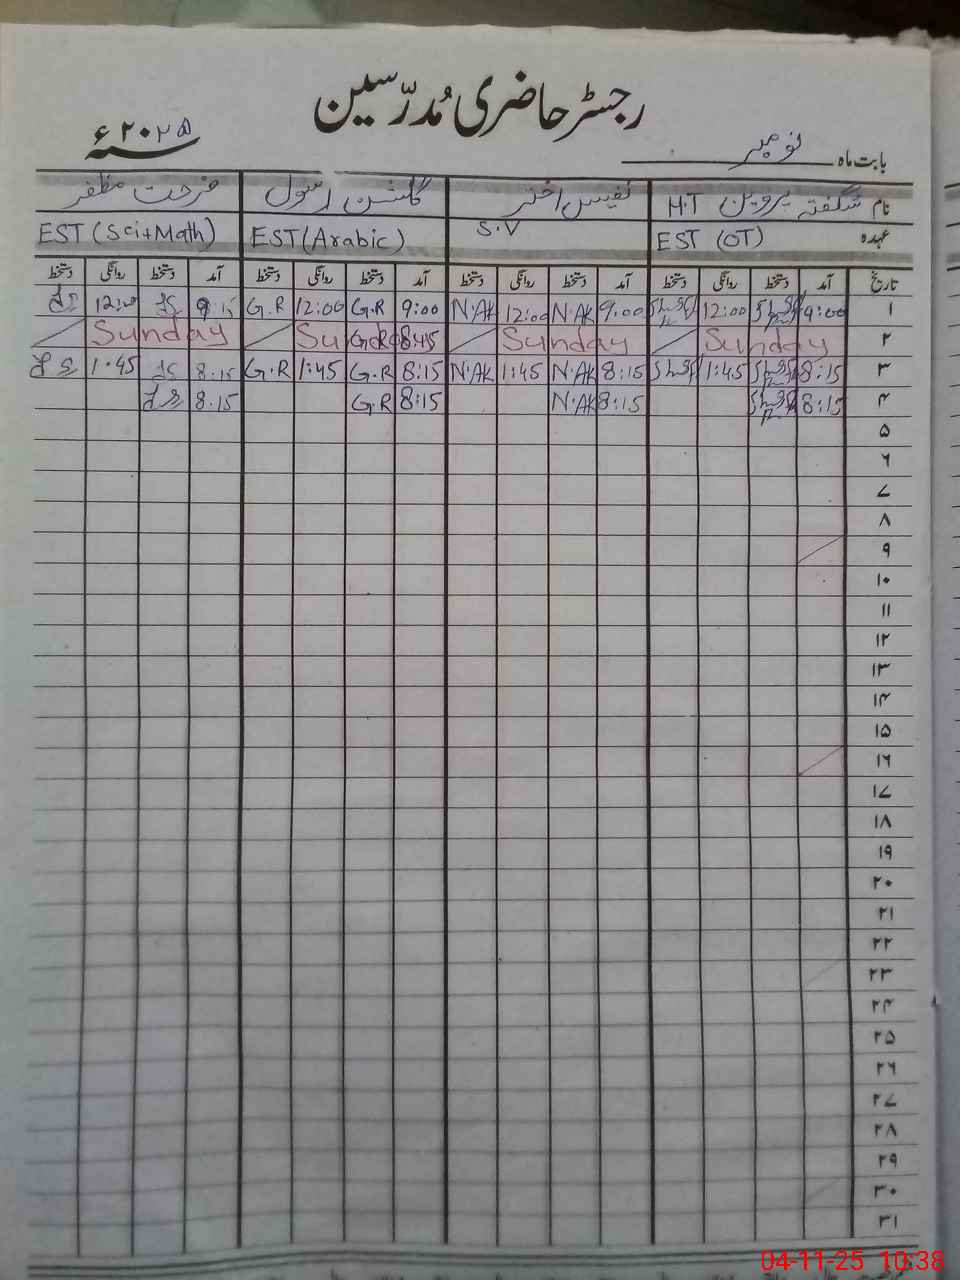 رجسٹر حاضری مُدرّسین
بابت ماہ نومبر سنہ ۲۰۲۵ء
نام شگفتہ پروین H.T نفیس اختر گلشن رسول فرحت مظفر
عہدہ EST (OT) S.V EST (Arabic) EST (Sci+Math)
تاریخ آمد دستخط روانگی دستخط آمد دستخط روانگی دستخط آمد دستخط روانگی دستخط آمد دستخط روانگی دستخط
۱ 9:00 12:00 9:00 N.AK 12:00 N.AK 9:00 G.R 12:00 G.R 9:15 12:00
۲ Sunday Sunday 8:45 G.R Sunday Sunday
۳ 8:15 1:45 8:15 N.AK 1:45 N.AK 8:15 G.R 1:45 G.R 8:15 1.45
۴ 8:15 8:15 N.AK 8:15 G.R 8.15
۵
۶
۷
۸
۹
۱۰
۱۱
۱۲
۱۳
۱۴
۱۵
۱۶
۱۷
۱۸
۱۹
۲۰
۲۱
۲۲
۲۳
۲۴
۲۵
۲۶
۲۷
۲۸
۲۹
۳۰
۳۱
04-11-25 10:38